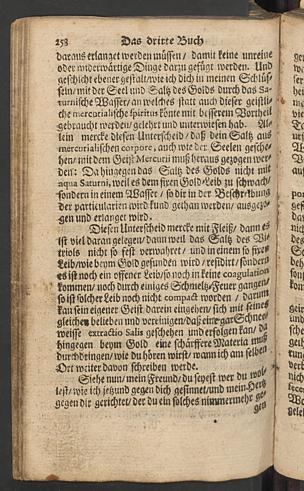 258 Das dritte Buch
daraus erlanget werden müssen / damit keine unreine
oder widerwärtige Dinge darzu gefügt werden. Und
geschicht ebener gestalt / wie ich dich in meinen Schlüs-
seln / mit der Seel und Saltz des Golds durch das Sa-
turnische Wasser / an welches statt auch dieser geistli-
che mercurialische spiritus könte mit besserem Vortheil
gebraucht werden / gelehrt und unterwiesen hab. Al-
lein mercke diesen Unterscheid / daß dein Saltz aus
mercurialischen corpore, auch wie der Seelen gesche-
hen / mit dem Geist Mercurii muß heraus gezogen wer-
den: Da hingegen das Saltz des Golds nicht mit
aqua Saturni, weil es dem fixen Gold-Leib zu schwach /
sondern in einem Wasser / so dir in der Beschreibung
der particularien wird kund gethan werden / ausgezo-
gen und erlanget wird.
Diesen Unterscheid mercke mit Fleiß / dann es
ist viel daran gelegen / dann weil das Saltz des Vi-
triols nicht so fest verwahret / und in einem so fixen
Leib / wie beym Gold gefunden wird / residirt / sondern
es ist noch ein offener Leib / so noch in keine coagulation
kommen / noch durch einiges Schmeltz-Feuer gangen /
so ist solcher Leib noch nicht compact worden / darum
kan sein eigener Geist darein eingehen / sich mit seines
gleichen belieben und vereinigen / daß eine gar Schnee-
weisse extractio Salis geschehen und erfolgen kan / da
hingegen beym Gold eine schärffere Materia muß
durchdringen / wie du hören wirst / wann ich am selben
Ort weiter davon schreiben werde.
Siehe nun / mein Freund / du seyest wer du wol-
lest / wie ich jetzund gegen dich gesinnet / und mein Hertz
gegen dir gerichtet / der du ein solches nimmermehr ge-
gen